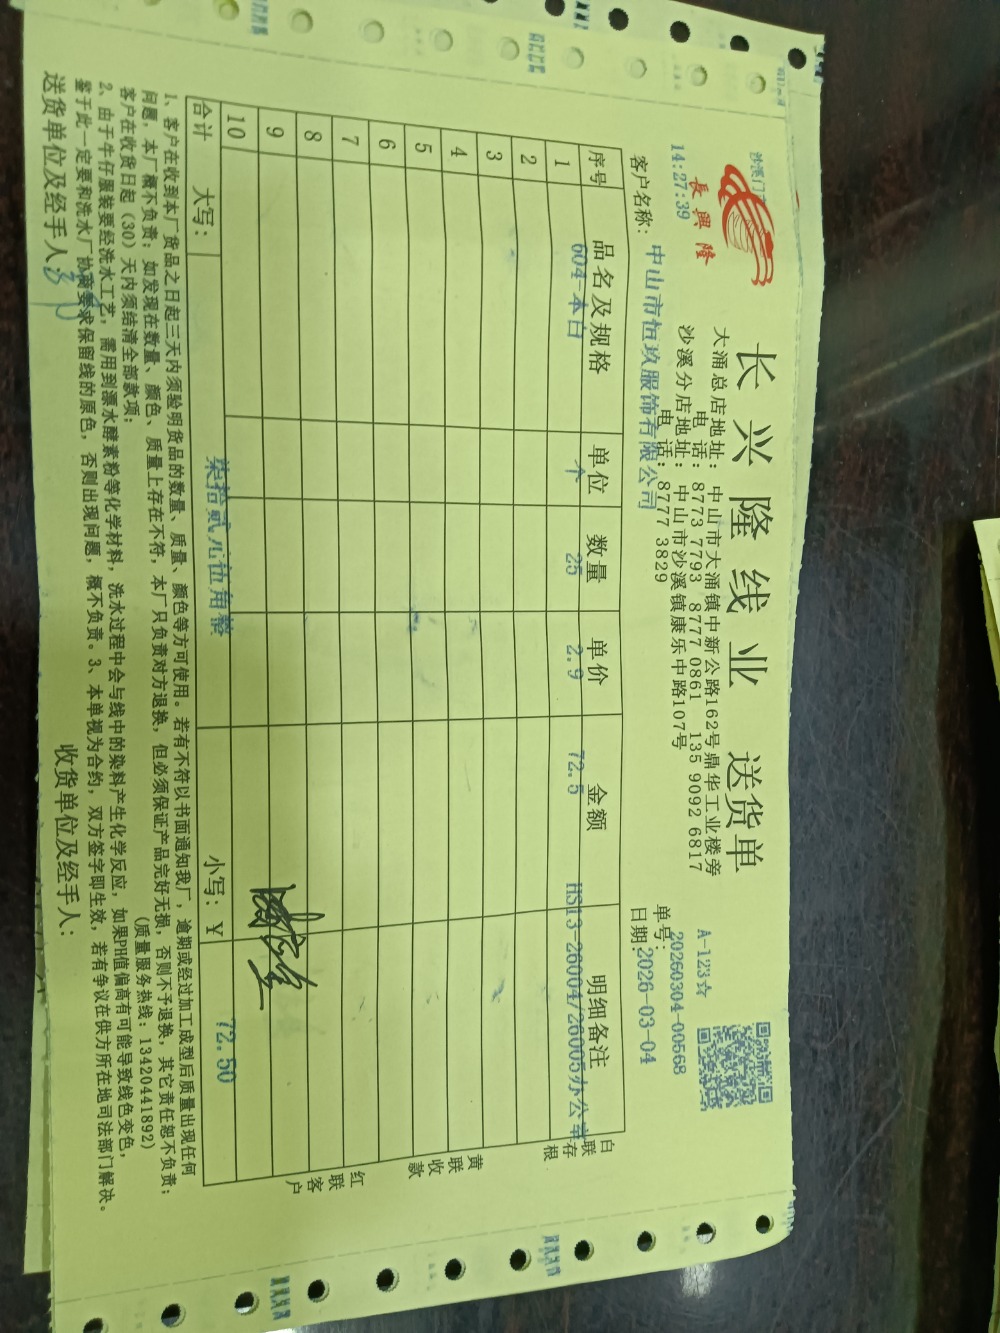 長興隆
长兴隆线业 送货单
A-123☆
大涌总店地址: 中山市大涌镇中新公路162号鼎华工业楼旁
电 话: 8773 7793 8777 0861 135 9092 6817
沙溪分店地址: 中山市沙溪镇康乐中路107号
电 话: 8777 3829
14:27:39
单号: 20260304-00568
客户名称: 中山市恒玖服饰有限公司
日期: 2026-03-04
序号 品名及规格 单位 数量 单价 金额 明细备注
1 604-本白 个 25 2.9 72.5 HS13-26004/26005办公室
2
3
4
5
6
7
8
9
10
合计 大写: 柒拾贰元伍角整 小写: ¥ 72.50
白联存根
黄联收款
红联客户
1、客户在收到本厂货品之日起三天内须验明货品的数量、质量、颜色等方可使用。若有不符以书面通知我厂, 逾期或经过加工成型后质量出现任何
问题, 本厂概不负责; 如发现在数量、颜色、质量上存在不符, 本厂只负责对方退换, 但必须保证产品完好无损, 否则不予退换, 其它责任恕不负责;
客户在收货日起(30)天内须结清全部款项; (质量服务热线: 13420441892)
2、由于牛仔服装要经洗水工艺, 需用到漂水酵素粉等化学材料, 洗水过程中会与线中的染料产生化学反应, 如果PH值偏高有可能导致线色变色,
鉴于此一定要和洗水厂协商要求保留线的原色, 否则出现问题, 概不负责。3、本单视为合约, 双方签字即生效, 若有争议在供方所在地司法部门解决。
送货单位及经手人: 收货单位及经手人: